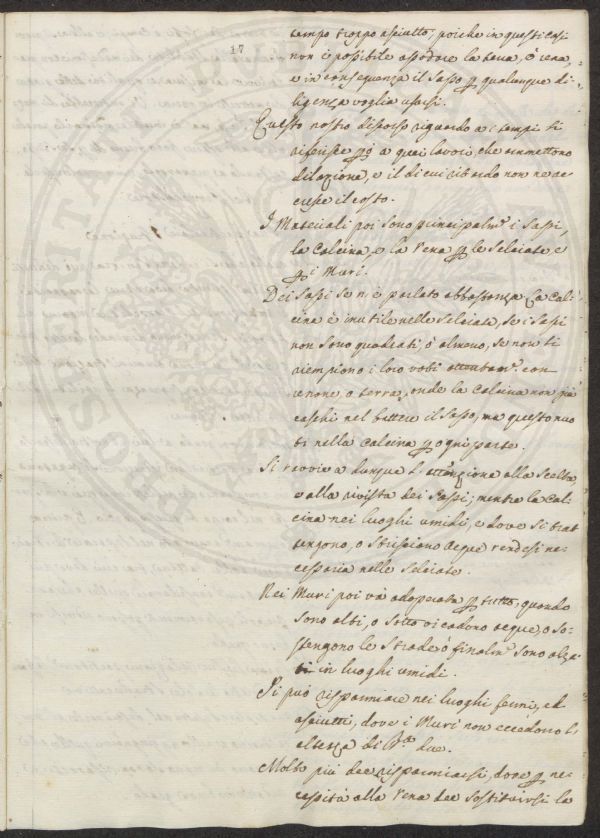 17
tempo troppo asciutto; poiche in questi casi
non è possibile assodare la terra, ò rena,
e in conseguenza il Sasso p qualunque di-
ligenza voglia usarsi.
Questo nostro discorso riguardo a i tempi si
riferisce p a quei lavori, che ammettono
dilazione, e il di cui ritardo non ne ac-
cresce il costo.
I Materiali poi sono principalm.e i Sassi,
la Calcina, e la Rena p le Selciate e
p i Muri.
Dei Sassi se n'è parlato abbastanza. La Cal-
cina è inutile nelle Selciate, se i Sassi
non sono quadrati, ò almeno, se non si
riempiono i loro voti attentam.e con
renone, o terra, onde la Calcina non giù
caschi nel battere il Sasso, ma questo nuo-
ti nella Calcina p ogni parte.
Si ravviva dunque l'attenzione alla scelta,
e alla rivista dei Sassi; mentre la Cal-
cina nei luoghi umidi, e dove si trat-
tengono, o strisciano acque rendesi ne-
cessaria nelle Selciate.
Nei Muri poi và adoperata p tutto, quando
sono alti, o sotto vi cadono acque, o so-
stengono le Strade ò finalm.e sono alza-
ti in luoghi umidi.
Si può risparmiare nei luoghi fermi, ed
asciutti, dove i Muri non eccedono l'
altezza di B.a due.
Molto più dee risparmiarsi, dove p ne-
cessità alla Rena dee sostituirsi la